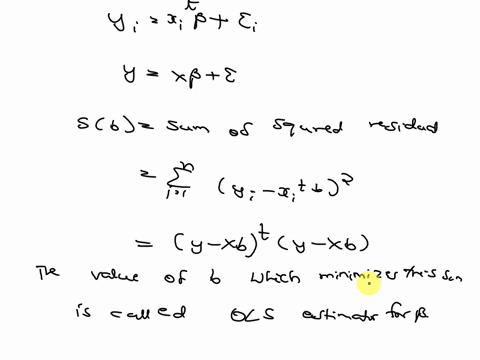 yᵢ = xᵢᵗ β + εᵢ
y = xβ + ε
S(b) = Sum of squred residual
= Σⁿᵢ₌₁ (yᵢ - xᵢᵗ b)²
= (y - xb)ᵗ (y - xb)
The value of b which minimizes this sum
is called OLS estimator for β